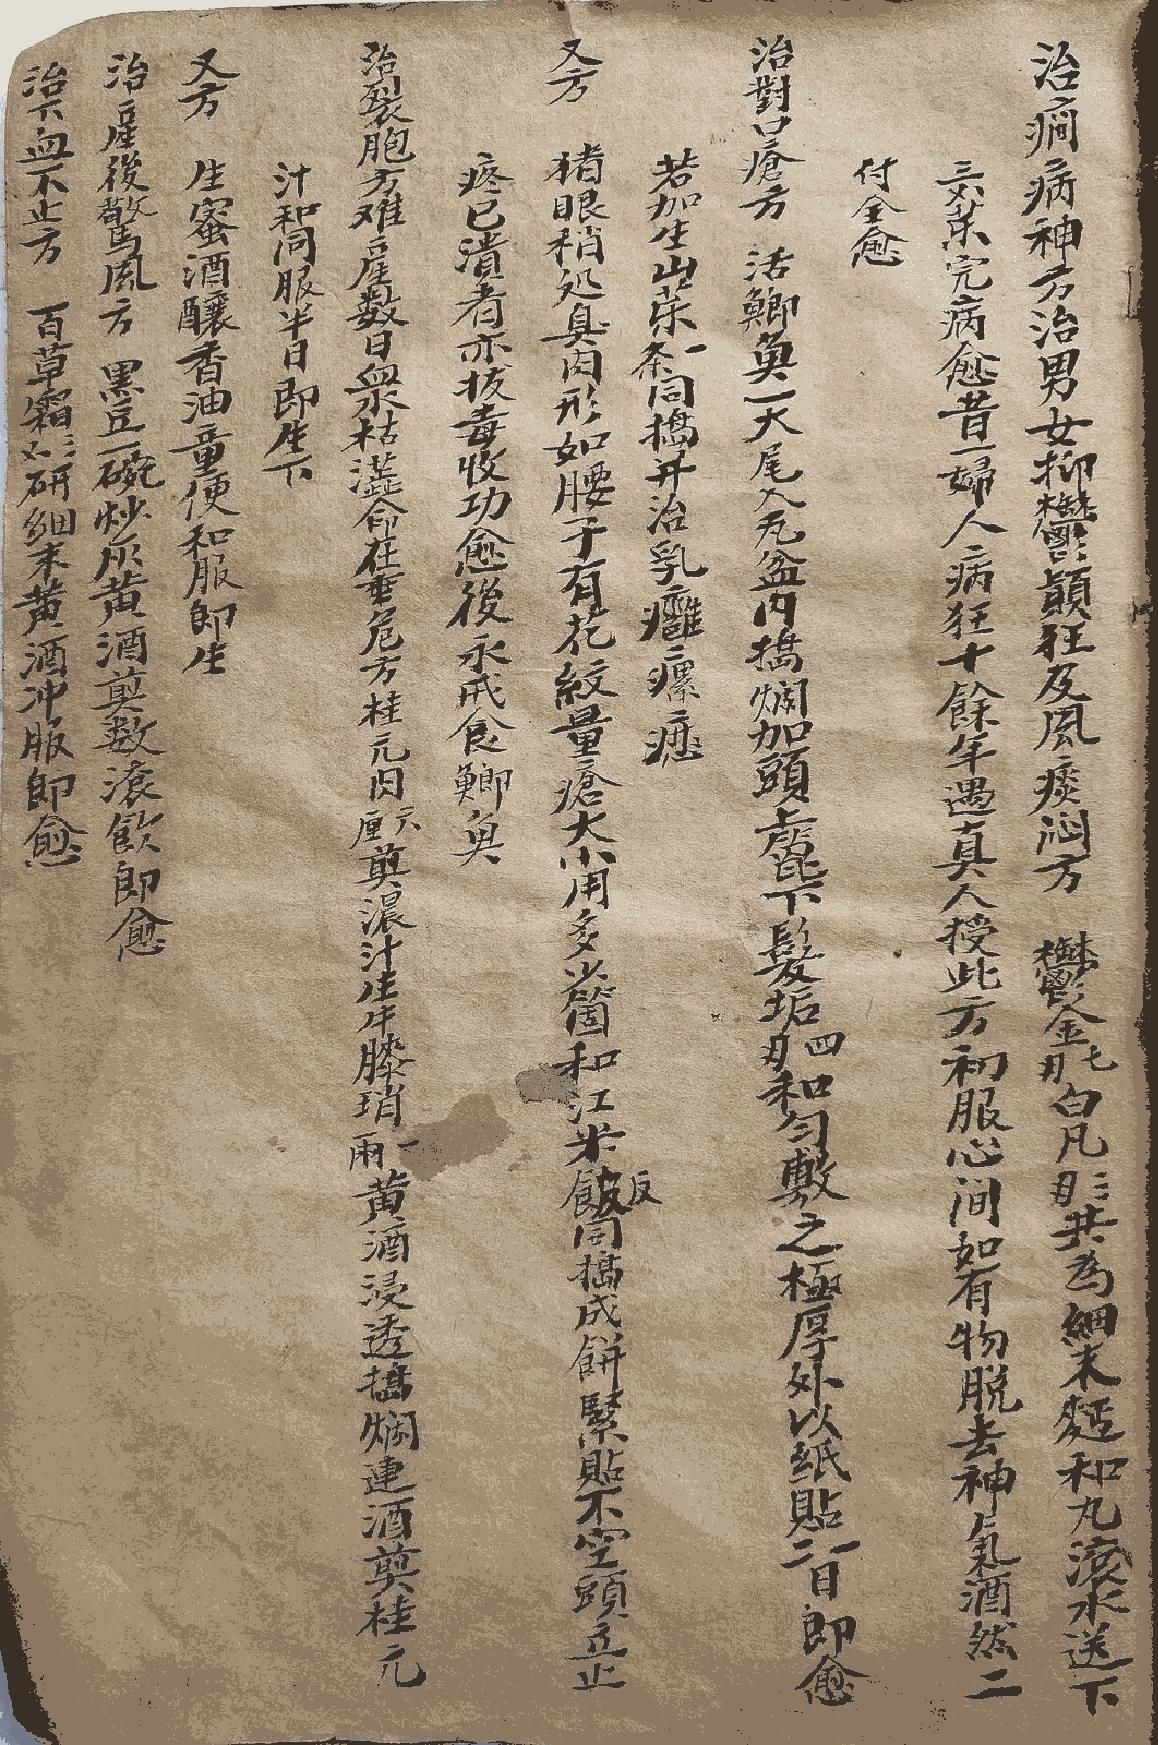 治癇病神方治男女抑鬱顛狂及風痰悶方 鬱金七月白凡三月共為細末麫和丸滾水送下
三次菜完病愈昔一婦人病狂十餘年遇真人授此方初服心間如有物脫去神氣洒然二
付全愈
治對口瘡方 活鯽魚一大尾入瓦盆內搗爛加頭上虱下髮垢四月和勻敷之極厚外以紙貼一二日即愈
若加生山藥一条同搗并治乳癰瘰癧
又方 猪眼梢処臭肉形如腰子有花紋量瘡大小用多少箇和江米飯同搗成餅緊貼不空頭立止
疼已潰者亦拔毒收功愈後永戒食鯽魚
治裂胞方难產数日衆枯澁命在垂危方桂元肉六厘煎濃汁生牛膝稍一兩黃酒浸透搗爛連酒煎桂元
汁和同服半日即生下
又方 生蜜酒釀香油童便和服即生
治產後驚風方 黑豆一碗炒灰黃酒煎数滾飲即愈
治下血不止方 百草霜研細末黃酒冲服即愈